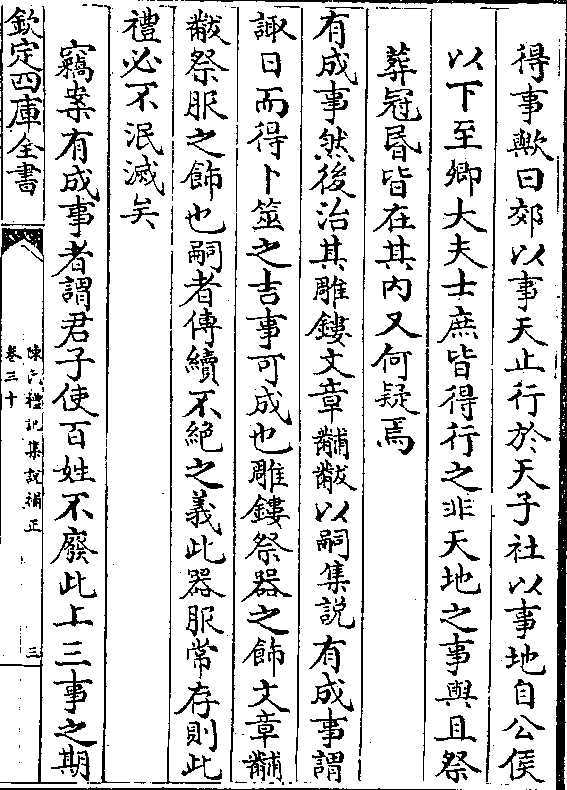 得事歟曰郊以事天止行於天子社以事地自公侯
以下至卿大夫士庶皆得行之非天地之事與且祭
葬冠昏皆在其内又何疑焉
有成事然後治其雕鏤文章黼黻以嗣集説有成事謂
諏日而得卜筮之吉事可成也雕鏤祭器之飾文章黼
黻祭服之飾也嗣者傳續不絶之義此器服常存則此
禮必不泯滅矣
竊案有成事者謂君子使百姓不廢此上三事之期
欽定四庫全書
陳氏禮記集說補正
卷三十
三